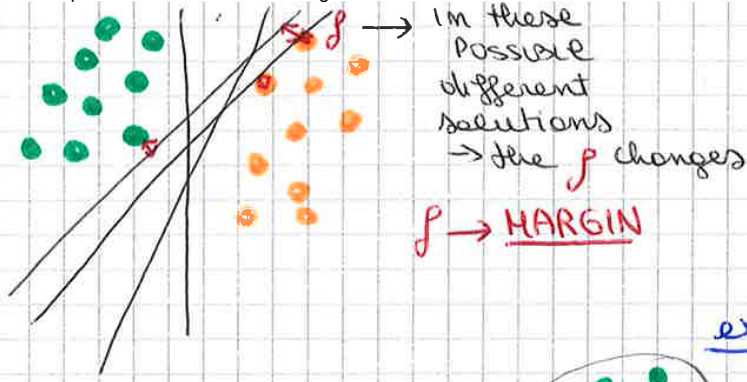 ρ → in these
possible
different
solutions
→ the ρ changes
ρ → MARGIN